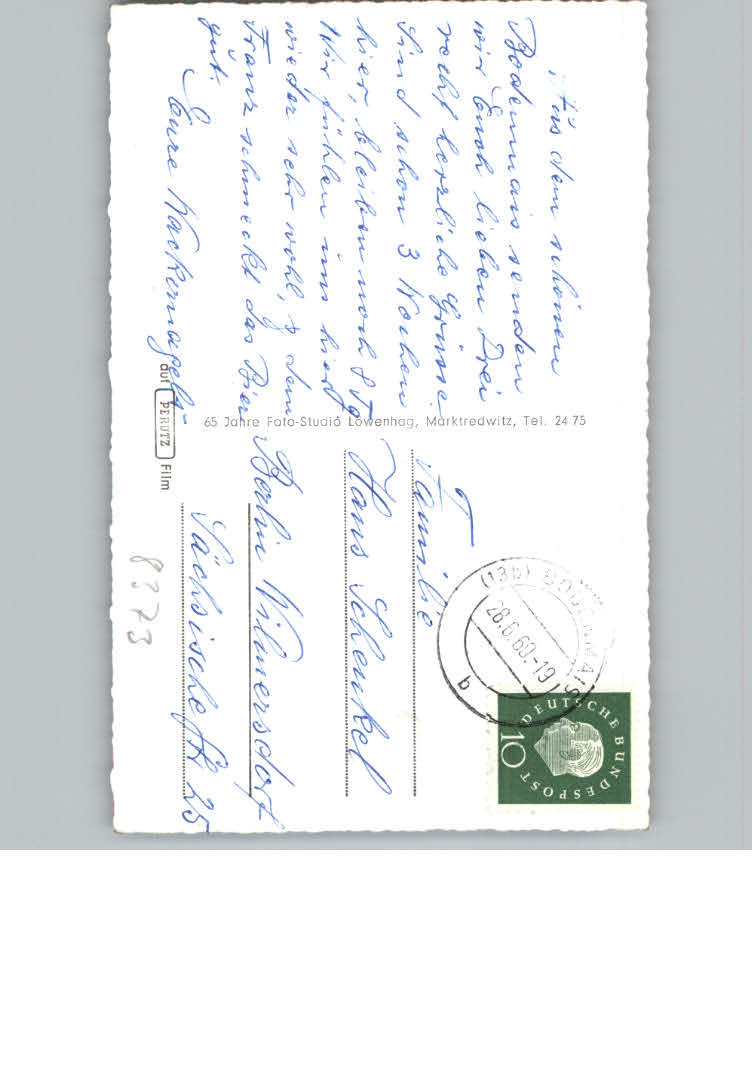 Aus dem schönen
Bodenmais senden
wir Euch lieben Drei
recht herzliche Grüsse.
Sind schon 3 Wochen
hier, bleiben noch 8 Tg
Wir fühlen uns hier
wieder sehr wohl, & dem
Franz schmeckt das Bier
gut.
Eure Wackernagels
65 Jahre Foto-Studio Löwenhag, Marktredwitz, Tel. 24 75
auf PERUTZ Film
(13b) BODENMAIS
28.6.60.-19
b
DEUTSCHE BUNDESPOST
10
Familie
Hans Schenkel
Berlin Wilmersdorf
Sächsische Str 25
8373